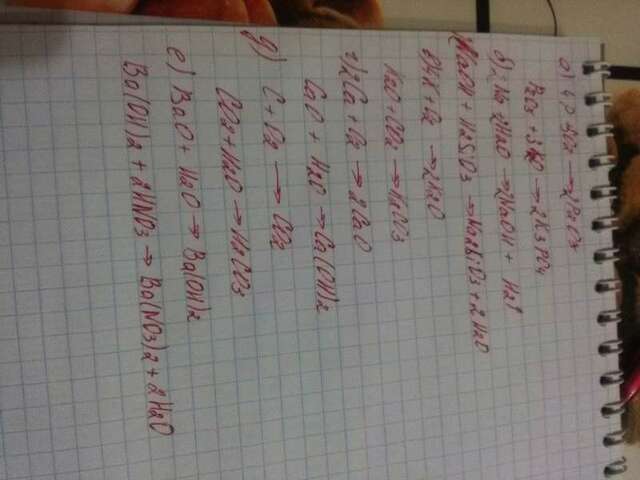 а) 4P + 5O2 → 2P2O5
P2O5 + 3K2O → 2K3PO4
б) 2Na + 2H2O → 2NaOH + H2↑
2NaOH + H2SiO3 → Na2SiO3 + 2H2O
в) 4K + O2 → 2K2O
K2O + CO2 → K2CO3
г) 2Ca + O2 → 2CaO
CaO + H2O → Ca(OH)2
д) C + O2 → CO2
CO2 + H2O → H2CO3
е) BaO + H2O → Ba(OH)2
Ba(OH)2 + 2HNO3 → Ba(NO3)2 + 2H2O